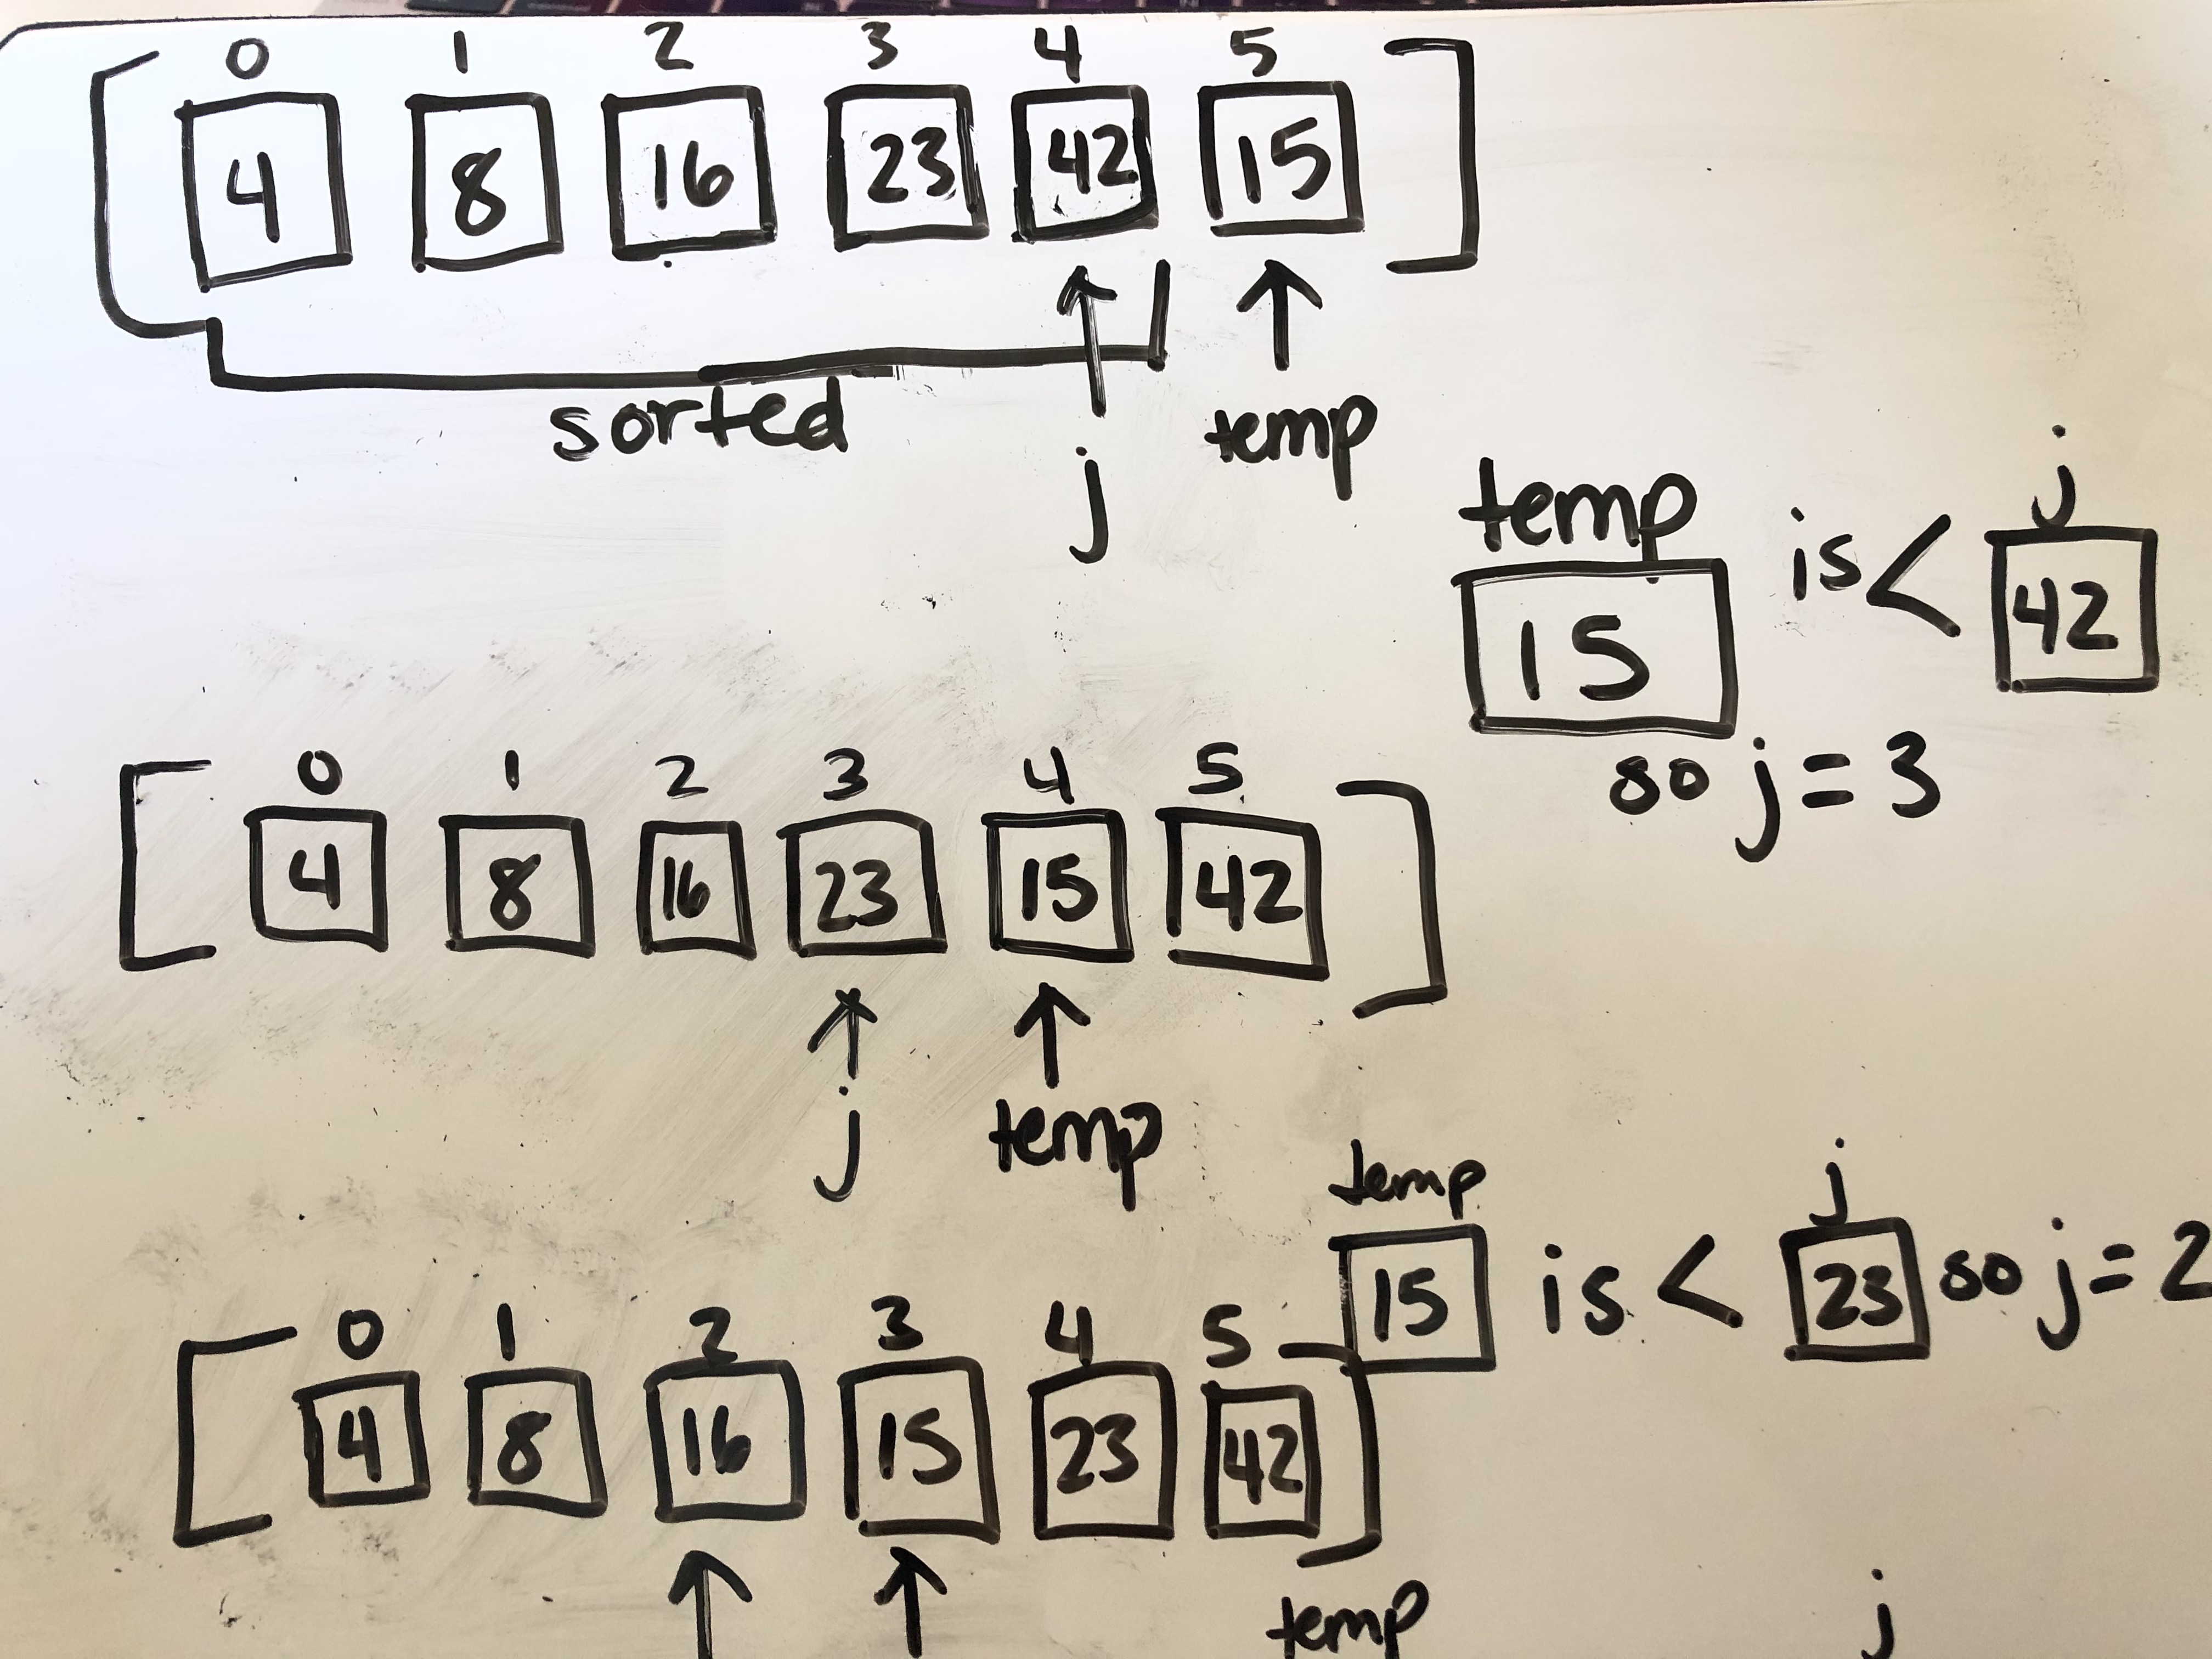 0 1 2 3 4 5
[ 4 8 16 23 42 15 ]
sorted j temp
temp j
15 is < 42
so j = 3
0 1 2 3 4 5
[ 4 8 16 23 15 42 ]
j temp
temp j
15 is < 23 so j = 2
0 1 2 3 4 5
[ 4 8 16 15 23 42 ]
temp j